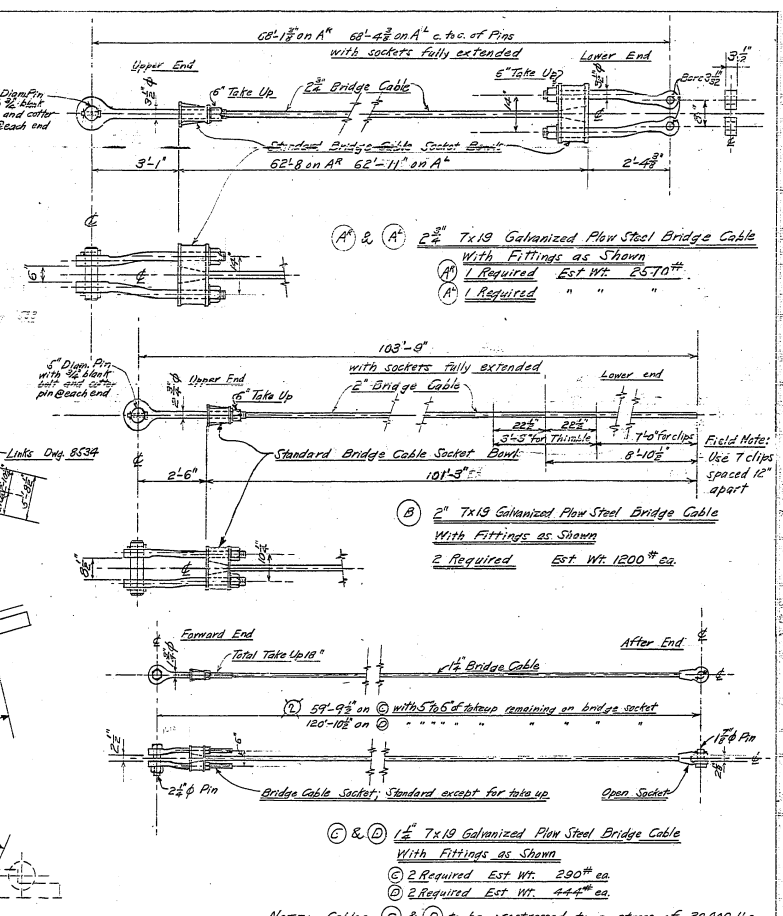 68'-1 3/8" on A^R 68'-4 3/8" on A^L c. to c. of Pins
with sockets fully extended
Upper End
Lower End
3 1/2"
Diam. Pin
and cotter
@ each end
6" Take Up
2 3/4" Bridge Cable
6" Take Up
Bore 3 1/32"
Standard Bridge Cable Socket Bowls
3'-1"
62'-8 on A^R 62'-11" on A^L
2'-4 3/8"
℄
6"
A^R & A^L 2 3/4" 7x19 Galvanized Plow Steel Bridge Cable
With Fittings as Shown
A^R 1 Required Est Wt. 2570#
A^L 1 Required " " "
103'-9"
with sockets fully extended
5" Diam. Pin
with 3/4 blank
bolt and cotter
pin @ each end
2 3/4" φ
Upper End
6" Take Up
2" Bridge Cable
Lower end
22 1/2" 22 1/2"
3'-5" for Thimble
7'-0" for clips
8'-10 1/2"
Field Note:
Use 7 clips
spaced 12"
apart
Links Dwg. 8534
Standard Bridge Cable Socket Bowl
2'-6"
101'-3"
B 2" 7x19 Galvanized Plow Steel Bridge Cable
With Fittings as Shown
2 Required Est Wt. 1200# ea.
8 1/2"
℄
10 1/4"
Forward End
After End
Total Take Up 18"
1 1/4" Bridge Cable
2 59'-9 1/2" on C with 5 to 6" of takeup remaining on bridge socket
120'-10 1/2" on D " " " " " " " "
2 1/2"
6"
1 7/8" φ Pin
2 1/4" φ Pin
Bridge Cable Socket; Standard except for take up
Open Socket
C & D 1 1/4" 7x19 Galvanized Plow Steel Bridge Cable
With Fittings as Shown
C 2 Required Est Wt. 290# ea.
D 2 Required Est Wt. 444# ea.